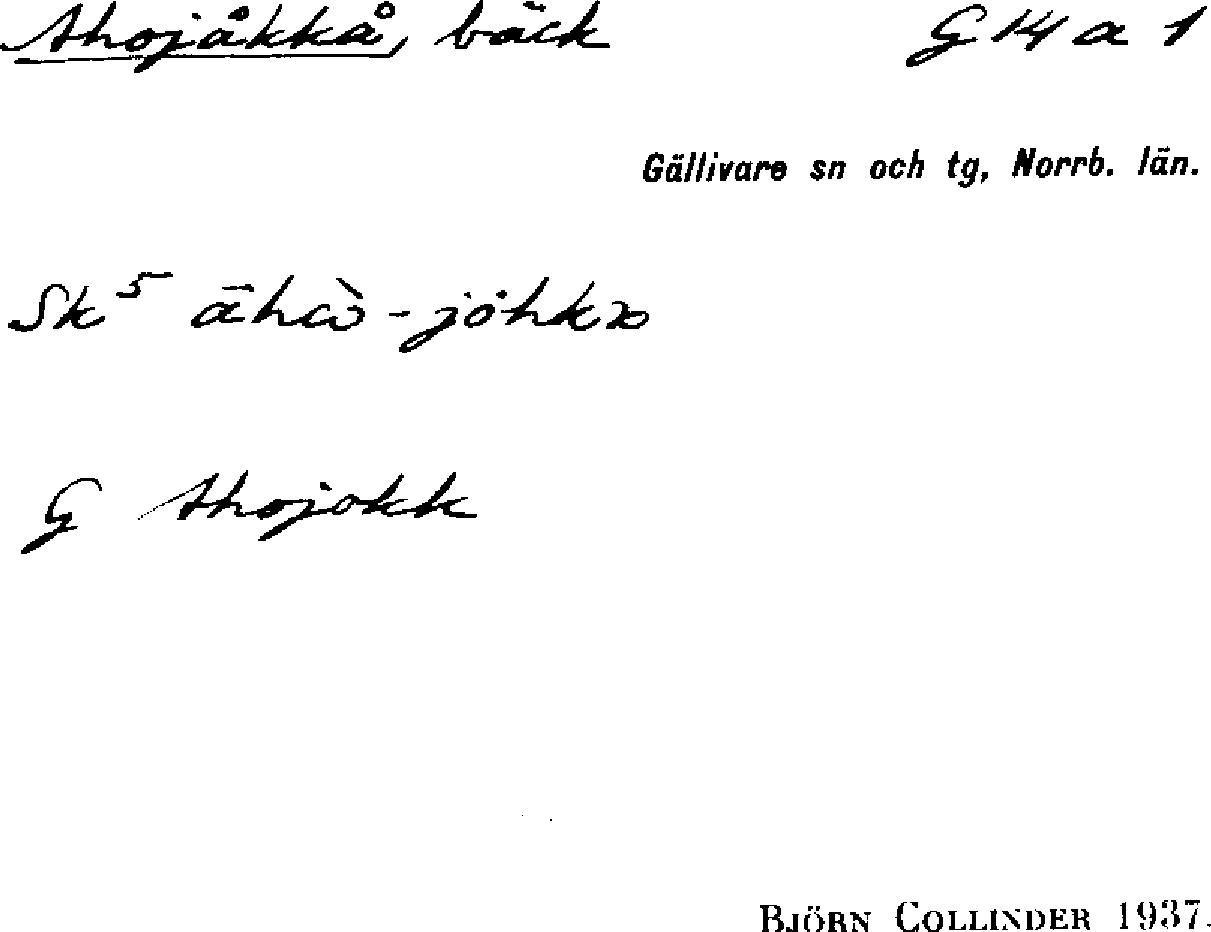 Ahojåkkå, bäck G 14 a 1
Gällivare sn och tg, Norrb. län.
Sk⁵
G Ahojokk
BJÖRN COLLINDER 1937.